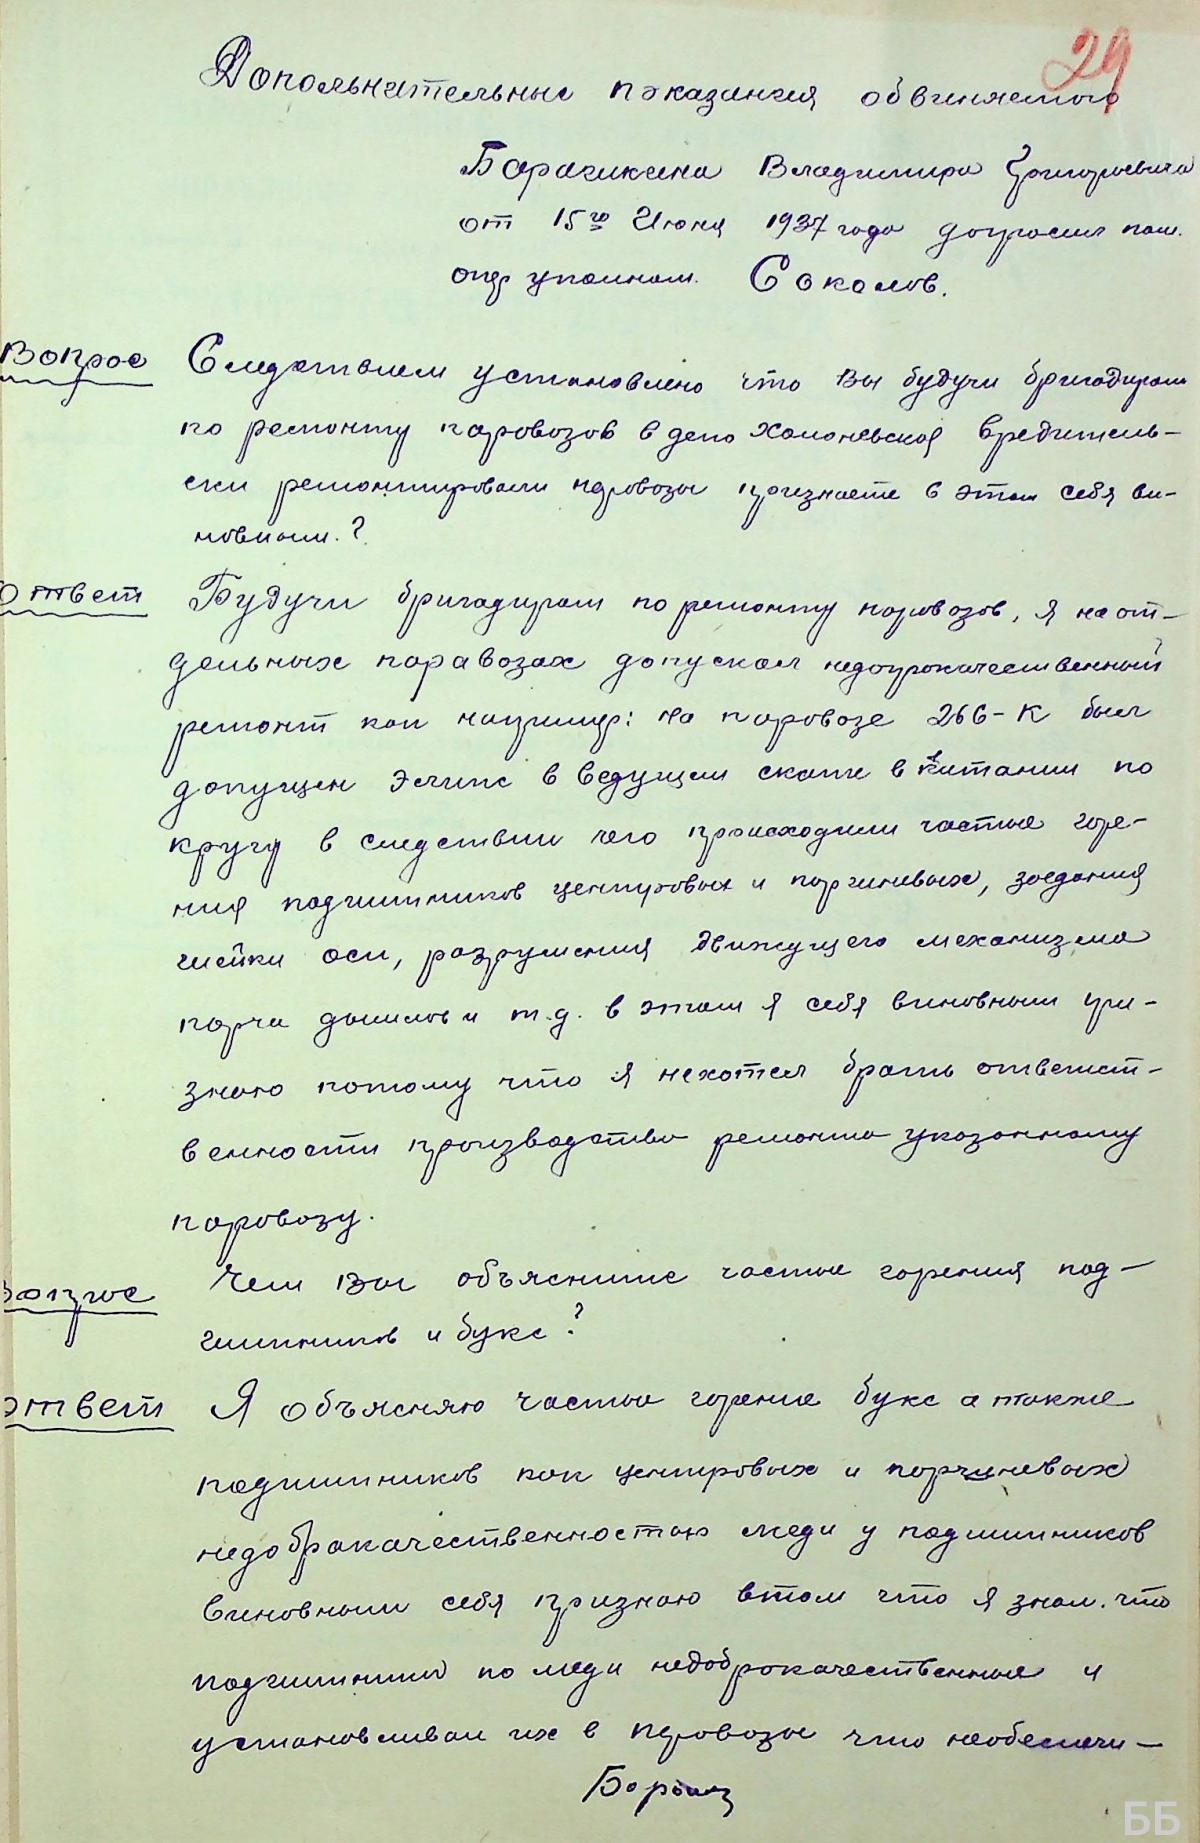 29
Дополнительные показания обвиняемого
Владимира Григорьевича
от 15го Июня 1937 года допросил пом.
опер уполном. Соколов.
Вопрос Следствием установлено что Вы будучи бригадиром
по ремонту паровозов в депо вредитель-
ски ремонтировали паровозы признаете в этом себя ви-
новным.?
Ответ Будучи бригадиром по ремонту паровозов, я на от-
дельных паравозах допускал недоброкачественный
ремонт как например: на паровозе 266-К был
допущен в ведущем скате в по
кругу в следствии чего происходили частые горе-
ния подшипников центровых и поршневых, заедания
шейки оси, разрушения движущего механизма
порча и т.д. в этом я себя виновным при-
знаю потому что я нехотел брать ответст-
венности производства ремонта указанному
паровозу.
Вопрос Чем Вы объясните частые горения под-
шипников и букс?
Ответ Я объясняю частые горение букс а также
подшипников как центровых и поршневых
недоброкачественностью меди у подшипников
виновным себя признаю втом что я знал. что
подшипники по меди недоброкачественные и
установливал их в паровозы что необеспечи-
ББ